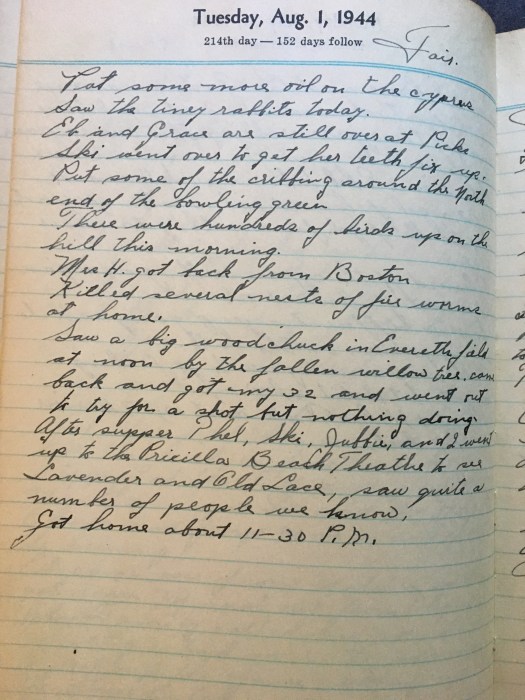 Tuesday, Aug. 1, 1944
214th day — 152 days follow
Fair.
Put some more oil on the cypress
Saw the tiney rabbits today.
Eb and Grace are still over at Picks
Ski went over to get her teeth fix up.
Put some of the cribbing around the North
end of the bowling green
There were hundreds of birds up on the
hill this morning.
Mrs H. got back from Boston
Killed several nests of fire worms
at home.
Saw a big woodchuck in Everett field
at noon by the fallen willow tree. came
back and got my 32 and went out
to try for a shot but nothing doing
After supper Phel, Ski, Jubbie, and I went
up to the Pricilla Beach Theathe to see
Lavender and Old Lace, saw quite a
number of people we know.
Got home about 11-30 P.M.